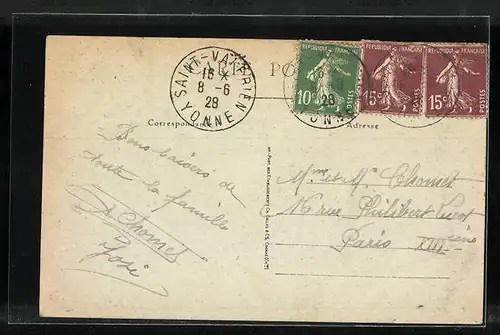 CARTE POSTALE
SAINT-VALERIEN
16 *
8 -6
28
YONNE
REPUBLIQUE FRANÇAISE
10c
POSTES
REPUBLIQUE FRANÇAISE
15c
POSTES
REPUBLIQUE FRANÇAISE
15c
POSTES
28
Correspondance
Adresse
Bons baisers de
toute la famille
Thomet
José
Mme et Mr Thomet
rue Philibert Lucot
Paris XIIIème